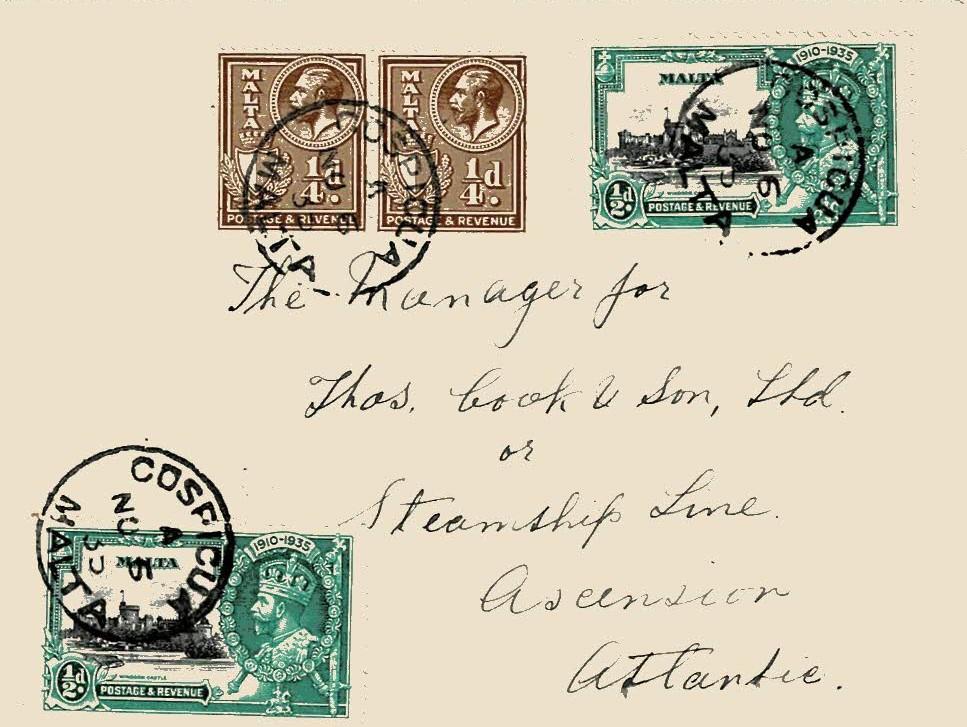 MALTA
1/4d.
POSTAGE & REVENUE
MALTA
1/4d.
POSTAGE & REVENUE
1910-1935
MALTA
WINDSOR CASTLE
1/2d.
POSTAGE & REVENUE
COSPICUA
A
NO
MALTA
COSPICUA
A
NO 6
MALTA
The Manager for
Thos. Cook & Son, Ltd.
or
Steamship Line.
Ascension
Atlantic.
COSPICUA
A
NO 5
35
MALTA
1910-1935
MALTA
WINDSOR CASTLE
1/2d.
POSTAGE & REVENUE